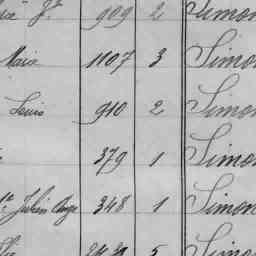 Jr 909 2 Simon
Marie 1107 3 Simon
Louis 940 2 Simon
379 1 Simon
Julien 348 1 Simon
5 Simon